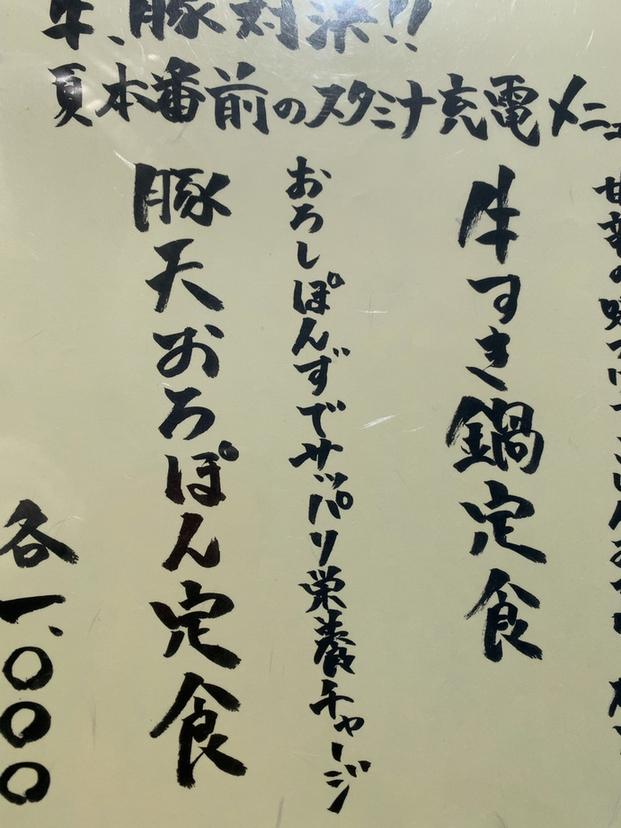 牛、豚対決!!
夏本番前のスタミナ充電メニュ
牛すき鍋定食
おろしぽんずでサッパリ栄養チャージ
豚天おろぽん定食
各一、〇〇〇